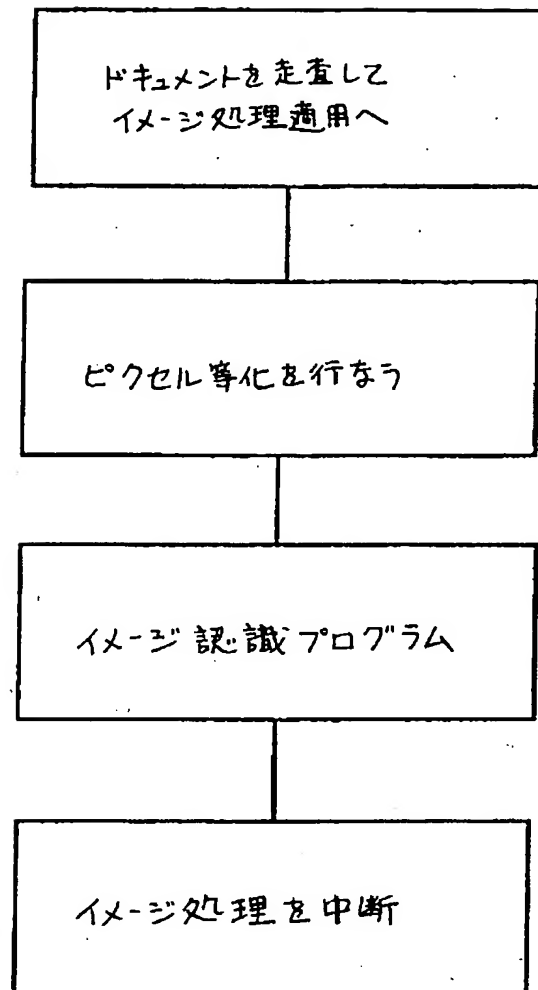 ドキュメントを走査して
イメージ処理適用へ
ピクセル等化を行なう
イメージ認識プログラム
イメージ処理を中断